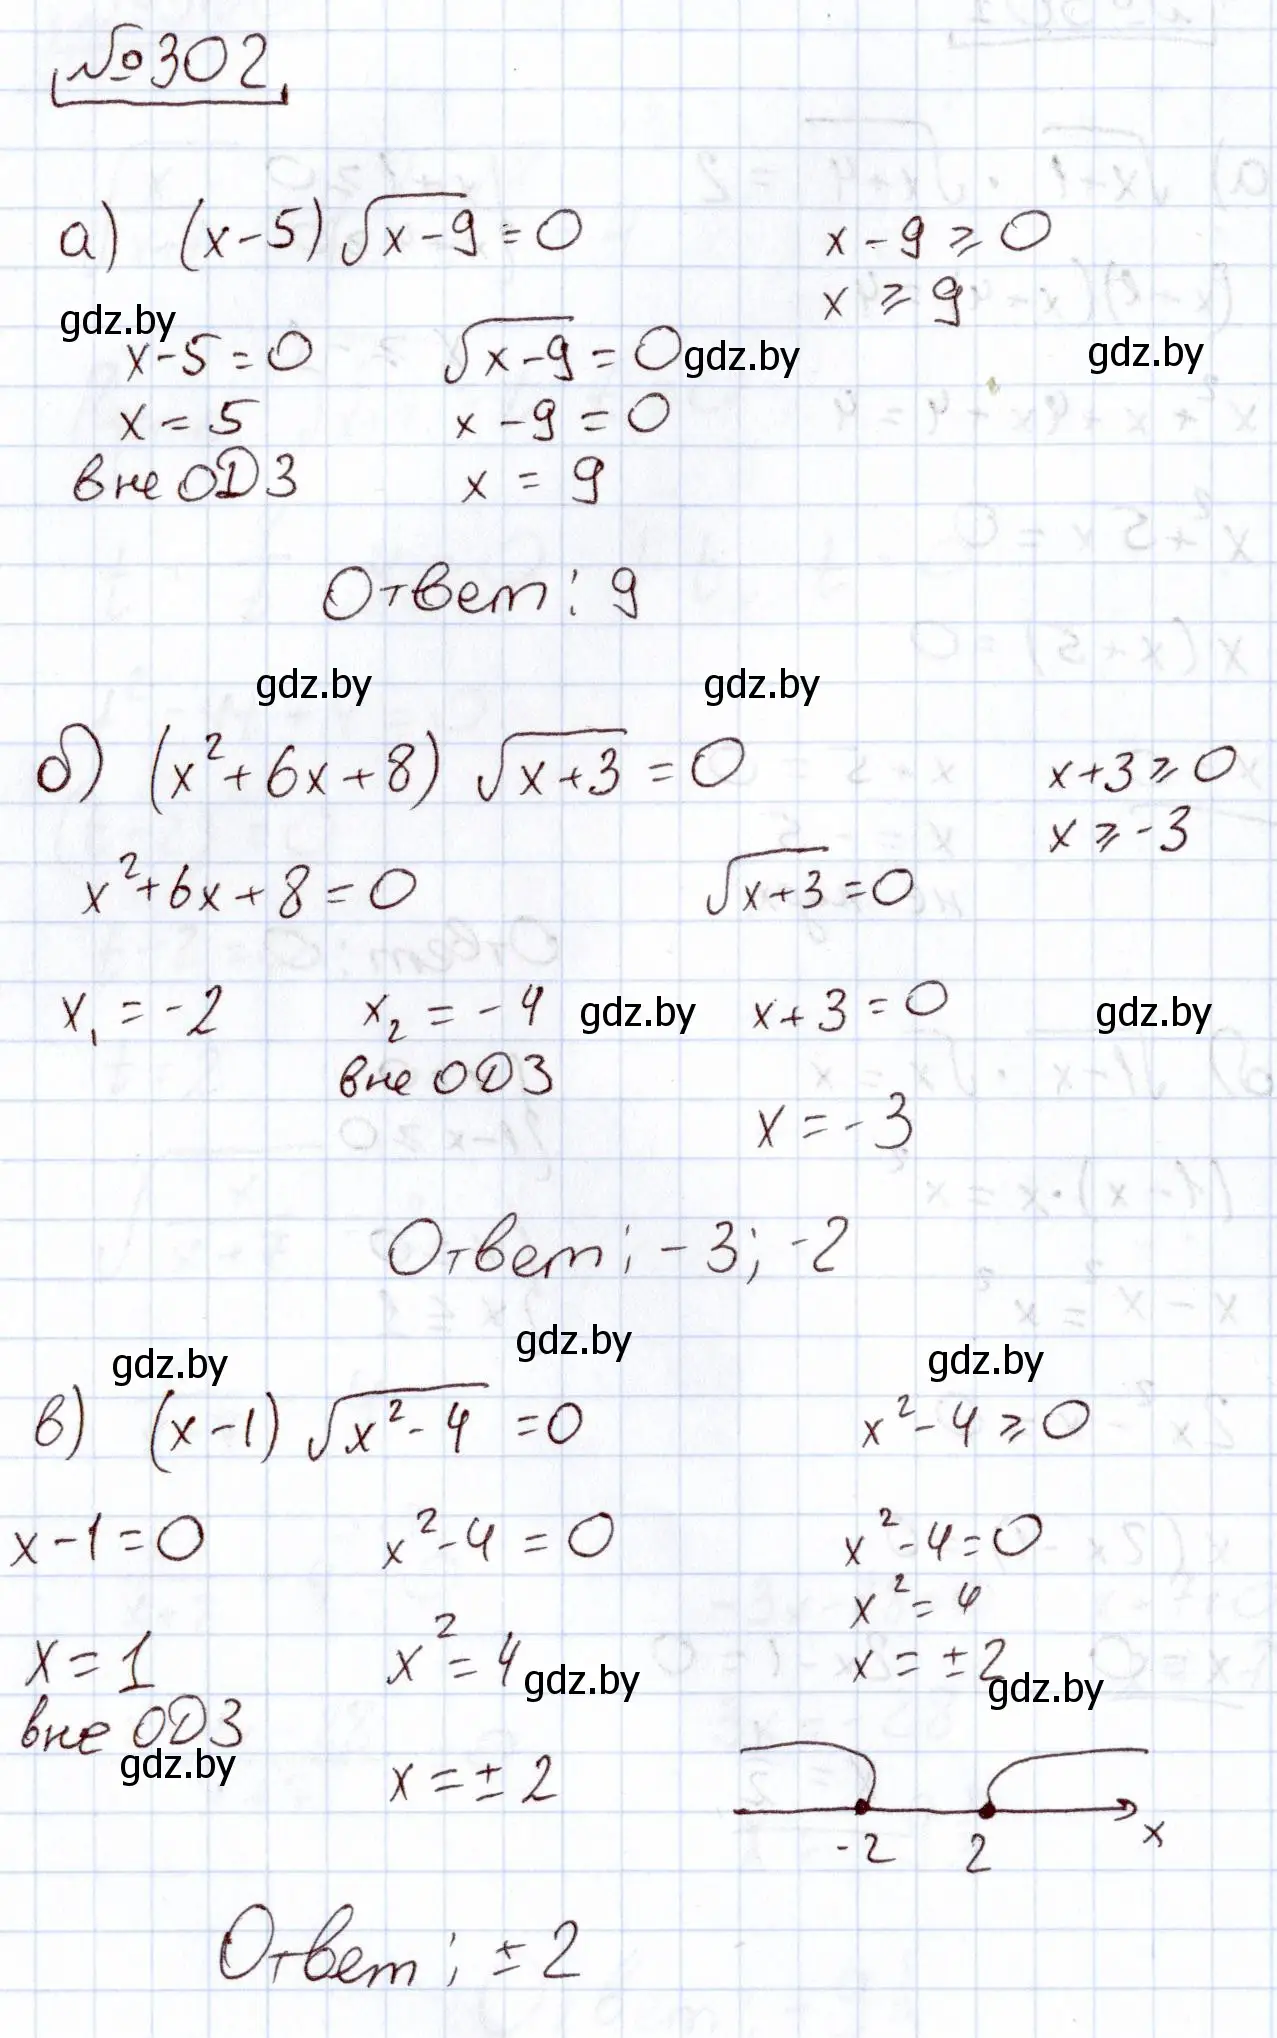 №302
а) (x-5)√(x-9) = 0    x-9 ≥ 0
x ≥ 9
gdz.by
x-5=0    √(x-9) = 0    gdz.by    gdz.by
x = 5    x-9 = 0
вне ОДЗ    x = 9
Ответ: 9
gdz.by    gdz.by
б) (x²+6x+8) √(x+3) = 0    x+3 ≥ 0
x ≥ -3
x²+6x+8=0    √(x+3) = 0
x₁ = -2    x₂ = -4    gdz.by    x+3=0    gdz.by
вне ОДЗ
x = -3
Ответ: -3; -2
gdz.by    gdz.by    gdz.by
в) (x-1) √(x²-4) = 0    x²-4 ≥ 0
x-1=0    x²-4 = 0    x²-4=0
x² = 4
x = 1    x² = 4    gdz.by    x = ±2    gdz.by
вне ОДЗ
gdz.by
x = ±2
-2    2    x
Ответ: ±2